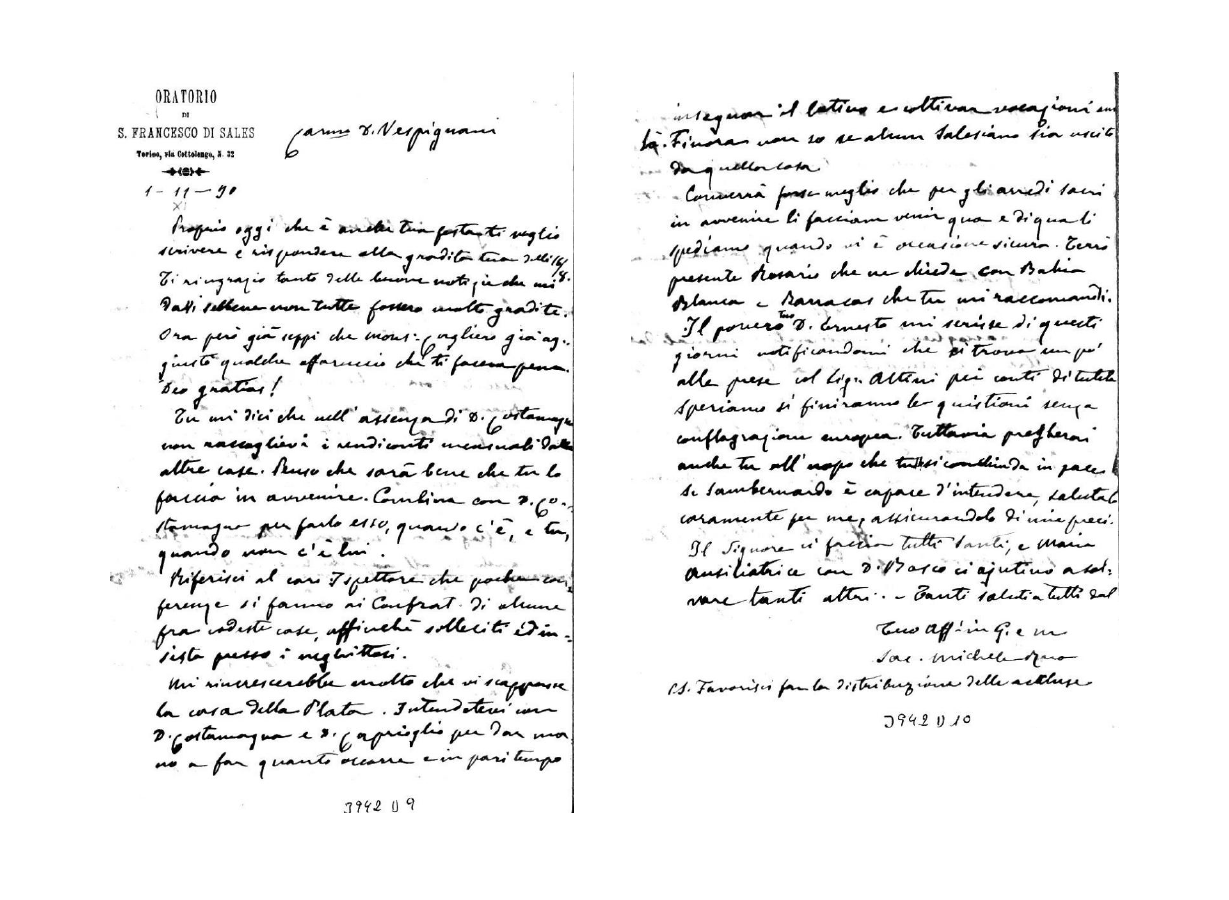 ORATORIO
DI
S. FRANCESCO DI SALES
Torino, via Cottolengo, N. 32
1-11-90
XI
Carmo D. Vespignani
Proprio oggi che è anche tua festa ti voglio
scrivere e rispondere alla gradita tua delli 16/8.
Ti ringrazio tanto delle buone notizie che mi
dasti sebbene non tutte fossero molto gradite.
Ora però già seppi che mons: Cagliero già ag-
giustò qualche affaruccio che ti faceva pena.
Deo gratias!
Tu mi dici che nell'assenza di D. Costamagna
non raccoglievi i rendiconti mensuali dalle
altre case. Penso che sarà bene che tu lo
faccia in avvenire. Combina con D. Co-
stamagna per farlo esso, quando c'è, e tu,
quando non c'è lui.
Riferisci al caro Ispettore che poche con-
ferenze si fanno ai Confrat. di alcune
fra codeste case, affinchè solleciti ed in-
sista presso i neghittosi.
Mi rincrescerebbe molto che vi scappasse
la casa della Plata. Intendetevi con
D. Costamagna e D. Caprioglio per dar ma-
no a far quanto occorre e in pari tempo
3942 D 9
insegnar il latino e coltivar vocazioni
là. Finora non so se alcun Salesiano sia uscito
da quella casa.
Converrà forse meglio che per gli arredi sacri
in avvenire li facciam venir qua e di qua li
spediamo quando vi è occasione sicura. Terrò
presente Rosario che ne chiede con Bahia
Blanca e Barracas che tu mi raccomandi.
Il povero tuo D. Ernesto mi scrisse di questi
giorni notificandomi che si trova un pò
alle prese col Sig. Attini per conti di
Speriamo si finiranno le quistioni senza
conflagrazione europea. Tuttavia pregherai
anche tu all'uopo che tutto si conchiuda in pace.
Se Sambernardo è capace d'intendere, salutalo
caramente per me, assicurandolo di mie preci.
Il Signore ci faccia tutti Santi, e Maria
Ausiliatrice con D. Bosco ci ajutino a sal-
vare tanti altri. - Tanti saluti a tutti dal
Tuo Aff: in G. e M
Sac. Michele Rua
P.S. Favorisci far la distribuzione delle accluse
3942 D 10